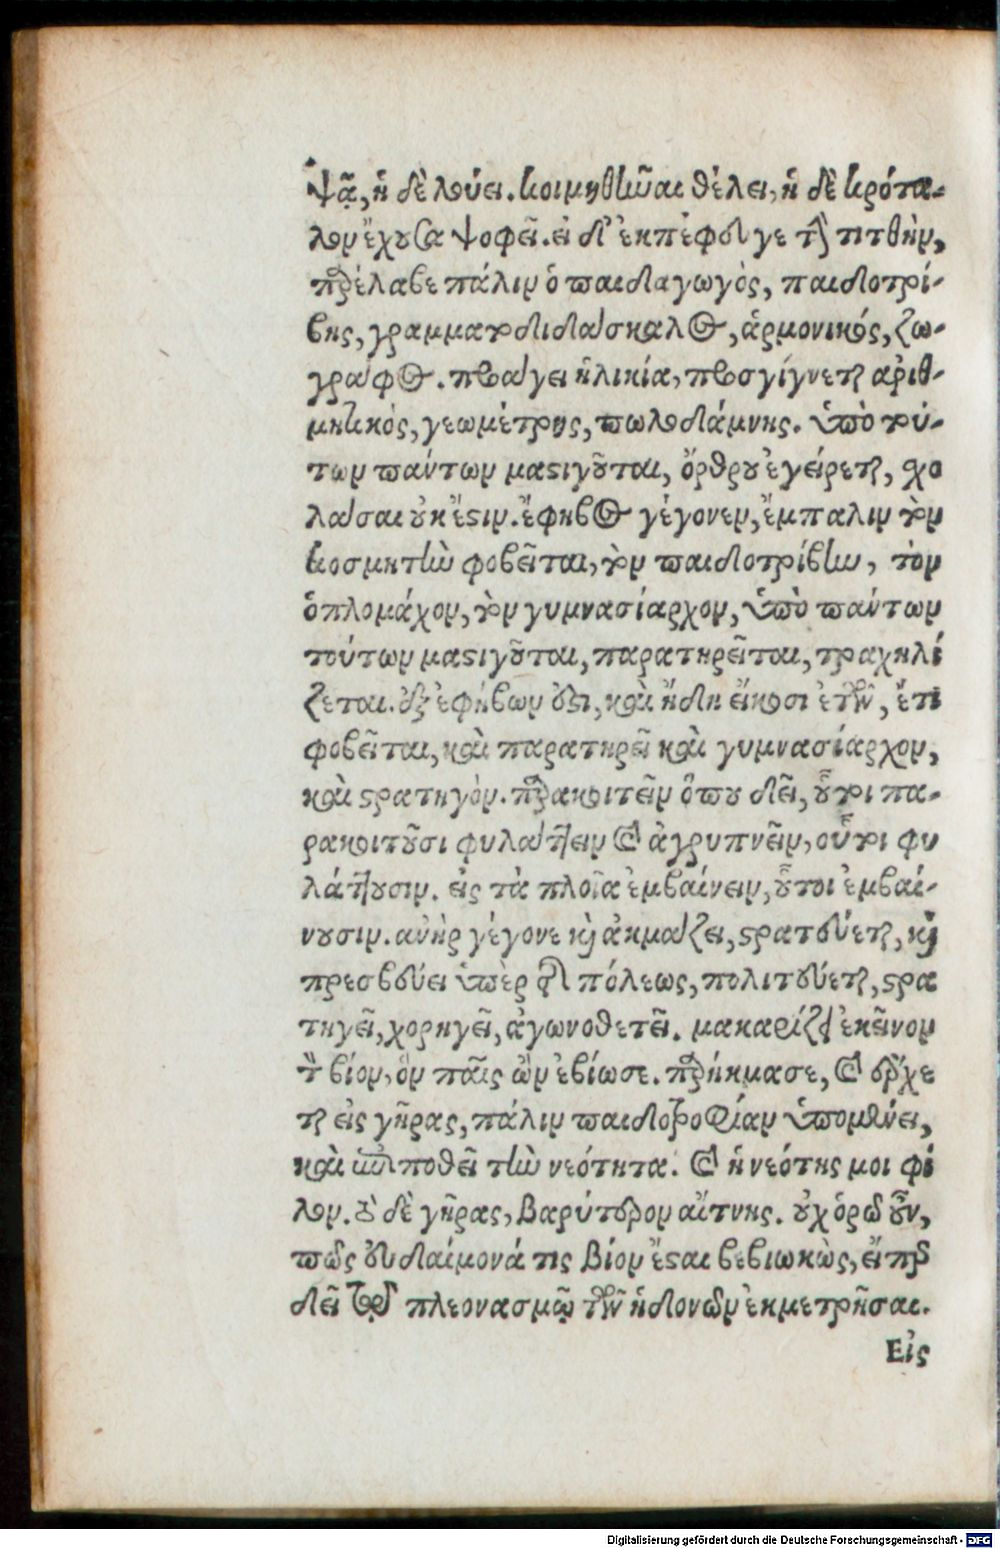 ψᾷ, ἡ δὲ λούει. κοιμηθῆναι θέλει, ἡ δὲ κρότα-
λον ἔχουσα ψοφεῖ. εἰ δ' ἐκπέφευγε τὴν τιτθὴν,
παρέλαβε πάλιν ὁ παιδαγωγὸς, παιδοτρί-
βης, γραμματοδιδάσκαλος, ἁρμονικός, ζω-
γράφος. προάγει ἡλικία, προσγίγνεται ἀριθ-
μητικὸς, γεωμέτρης, πωλοδάμνης. ὑπὸ τού-
των πάντων μαστιγοῦται, ὄρθρου ἐγείρεται, σχο
λάσαι οὐκ ἔστιν. ἔφηβος γέγονεν, ἔμπαλιν τὸν
κοσμητὴν φοβεῖται, τὸν παιδοτρίβην, τὸν
ὁπλομάχον, τὸν γυμνασίαρχον, ὑπὸ πάντων
τούτων μαστιγοῦται, παρατηρεῖται, τραχηλί
ζεται. ἐξ ἐφήβων ἐστι, καὶ ἤδη εἴκοσι ἐτῶν, ἔτι
φοβεῖται, καὶ παρατηρεῖ καὶ γυμνασίαρχον,
καὶ στρατηγὸν. παρακοιτεῖν ὅπου δεῖ, οὗτοι πα-
ρακοιτοῦσι φυλάττειν καὶ ἀγρυπνεῖν, οὗτοι φυ
λάττουσιν. εἰς τὰ πλοῖα ἐμβαίνειν, οὗτοι ἐμβαί-
νουσιν. ἀνὴρ γέγονε καὶ ἀκμάζει, στρατεύεται, καὶ
πρεσβεύει ὑπὲρ τῆς πόλεως, πολιτεύεται, στρα
τηγεῖ, χορηγεῖ, ἀγωνοθετεῖ. μακαρίζει ἐκεῖνον
τὸν βίον, ὃν παῖς ὢν ἐβίωσε. παρήκμασε, καὶ ἔρχε
ται εἰς γῆρας, πάλιν παιδοτροφίαν ὑπομένει,
καὶ ἐπιποθεῖ τὴν νεότητα. καὶ ἡ νεότης μοι φί
λον. τὸ δὲ γῆρας, βαρύτερον αἴτνης. οὐχ ὁρῶ οὖν,
πῶς εὐδαίμονά τις βίον ἔσται βεβιωκὼς, εἴπερ
δεῖ τῷ πλεονασμῷ τῶν ἡδονῶν ἐκμετρῆσαι.
Εἰς
Digitalisierung gefördert durch die Deutsche Forschungsgemeinschaft - DFG